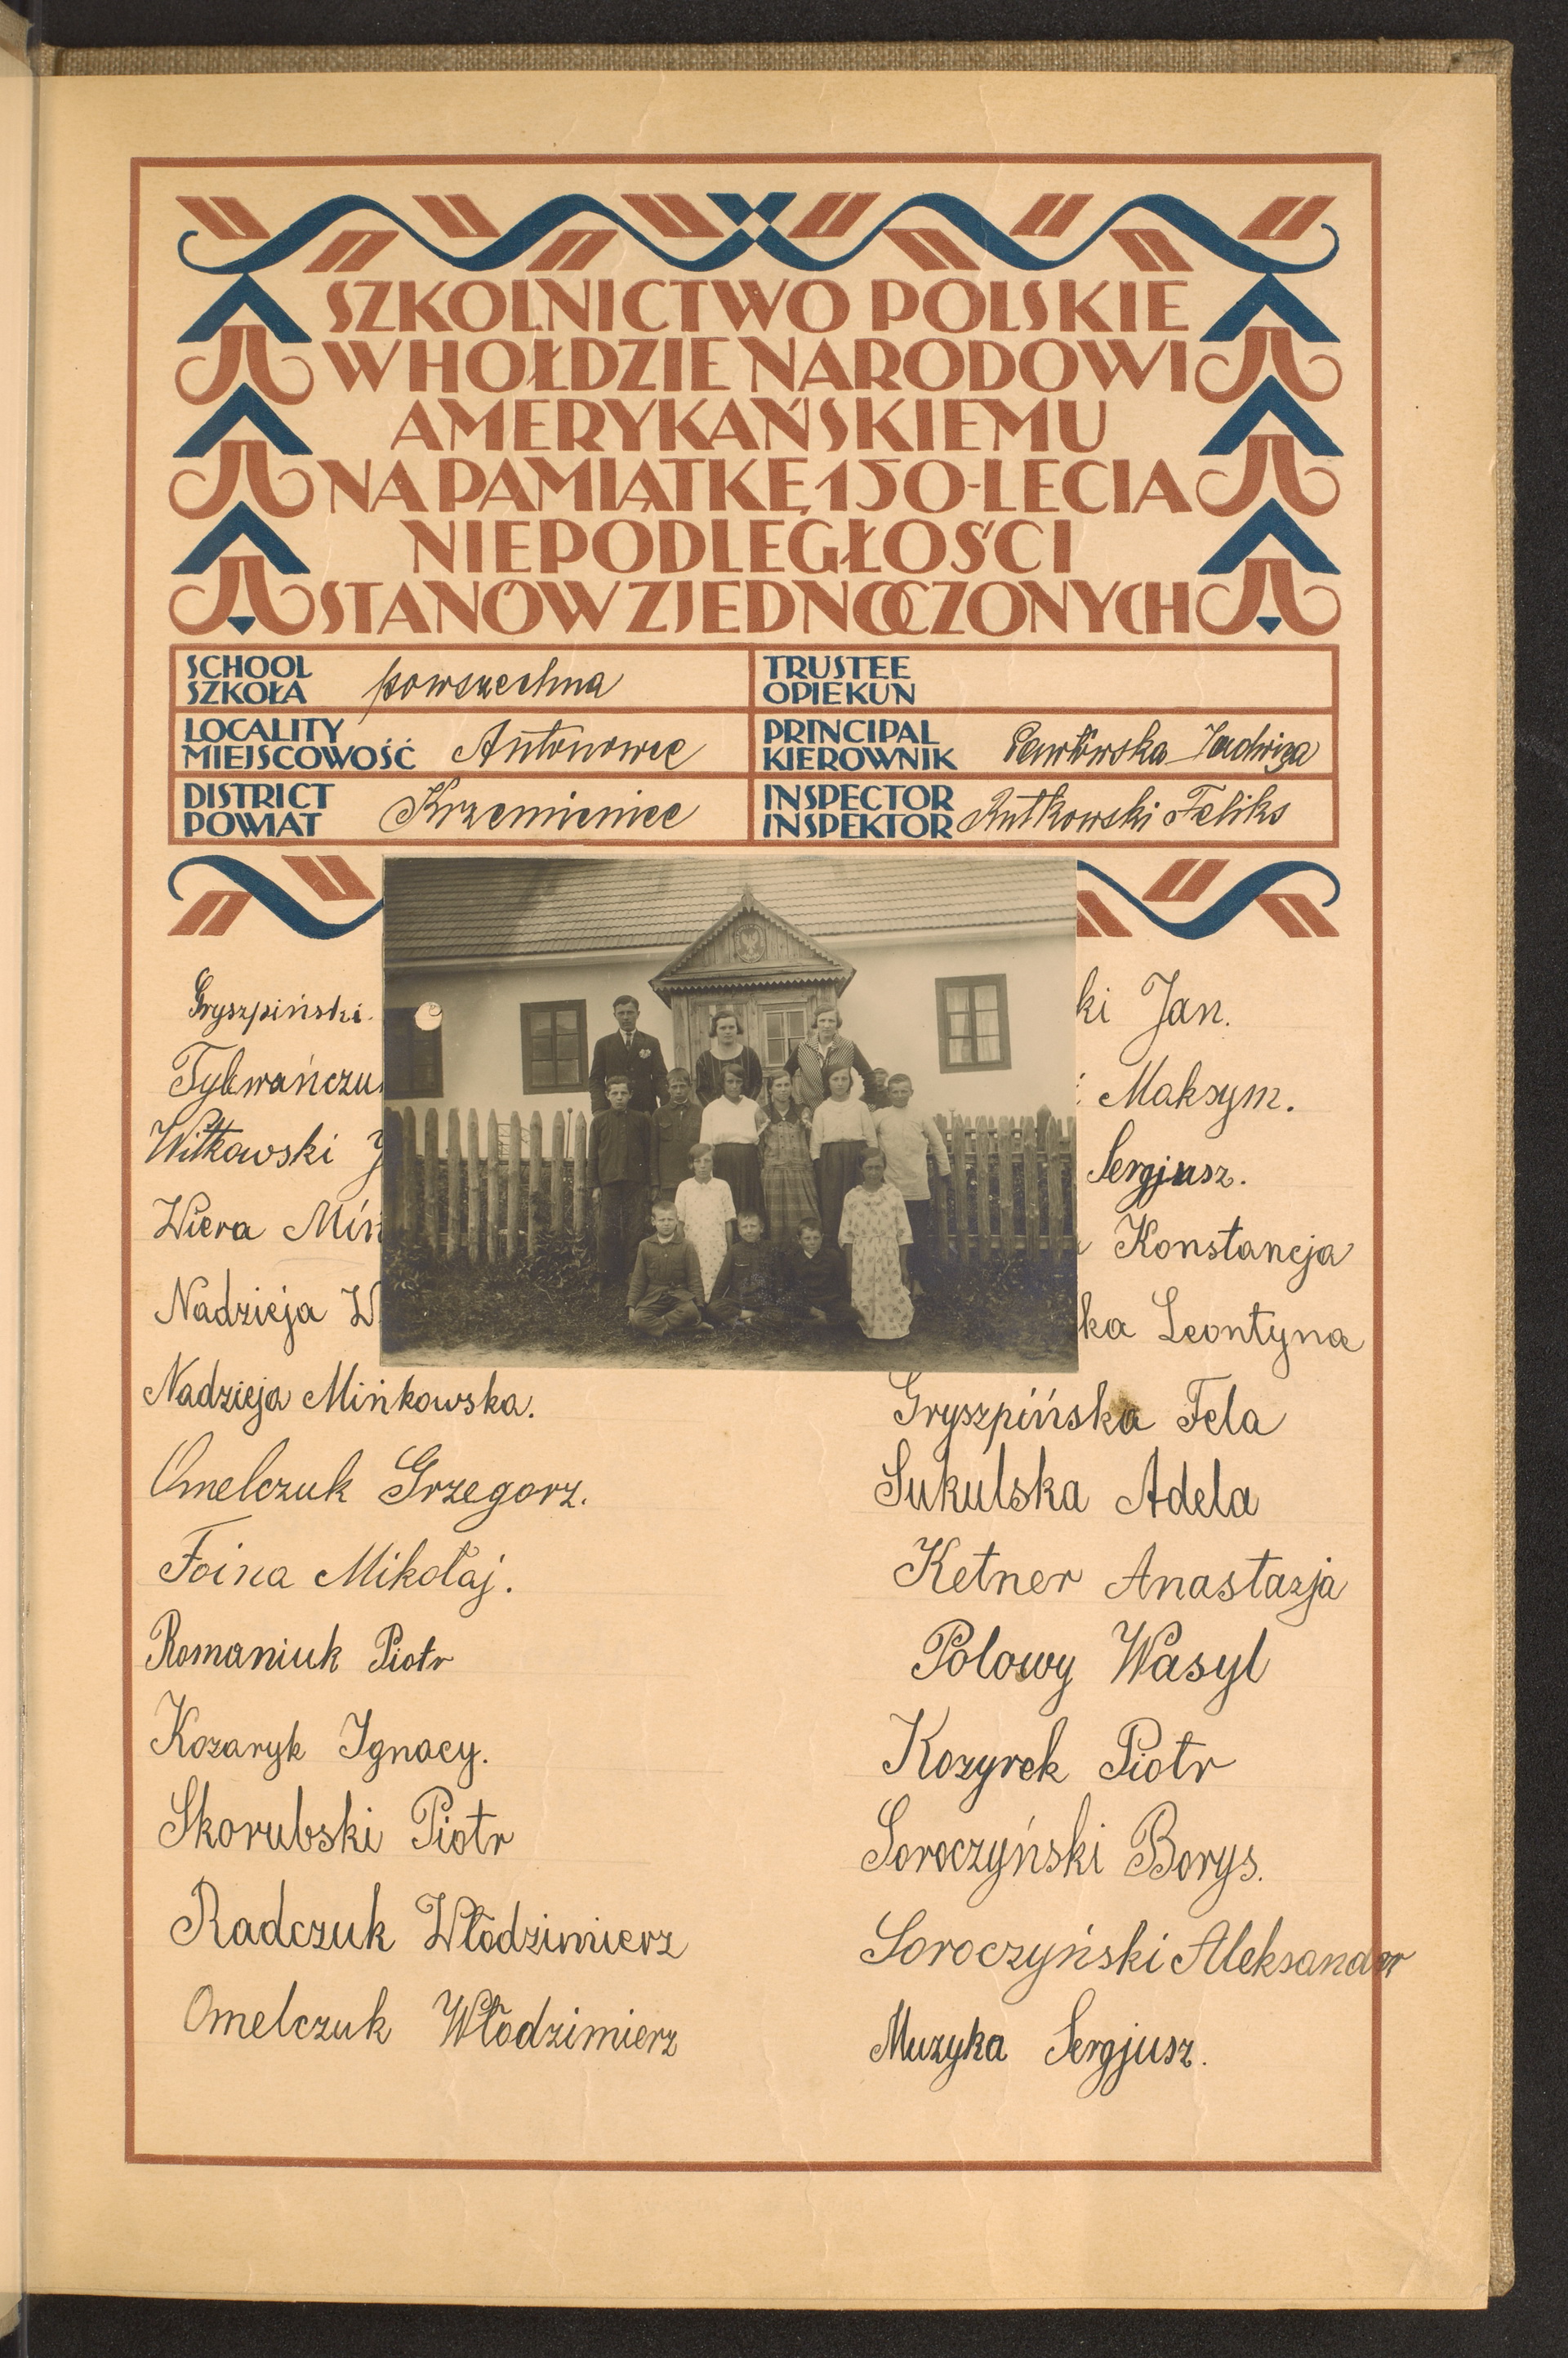 SZKOLNICTWO POLSKIE
W HOŁDZIE NARODOWI
AMERYKAŃSKIEMU
NA PAMIĄTKĘ 150-LECIA
NIEPODLEGŁOŚCI
STANÓW ZJEDNOCZONYCH
SCHOOL
SZKOŁA powszechna
TRUSTEE
OPIEKUN
LOCALITY
MIEJSCOWOŚĆ Antonowce
PRINCIPAL
KIEROWNIK Pawłowska Jadwiga
DISTRICT
POWIAT Krzemieniec
INSPECTOR
INSPEKTOR Rutkowski Feliks
Gryszpiński
Witkowski
Wiera
Nadzieja
Nadzieja Mińkowska.
Omelczuk Grzegorz.
Foina Mikołaj.
Romaniuk Piotr
Kozaryk Ignacy.
Skorubski Piotr
Radczuk Włodzimierz
Omelczuk Włodzimierz
ki Jan.
Maksym.
Sergjusz.
Konstancja
ka Leontyna
Gryszpińska Fela
Sukulska Adela
Ketner Anastazja
Polowy Wasyl
Kozyrek Piotr
Soroczyński Borys.
Soroczyński Aleksander
Muzyka Sergjusz.